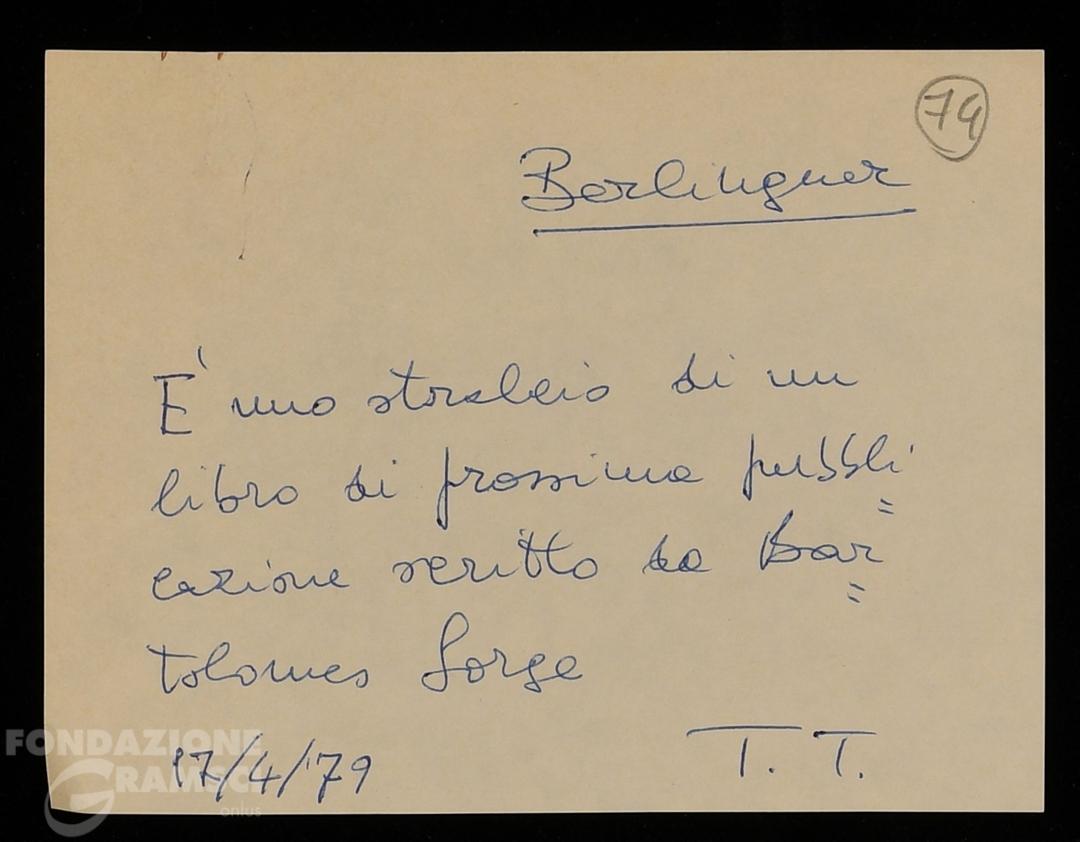 74
Berlinguer
E' uno stralcio di un
libro di prossima pubbli=
cazione scritto da Bar=
tolomeo Sorge
17/4/'79
T. T.
FONDAZIONE
GRAMSCI
onlus